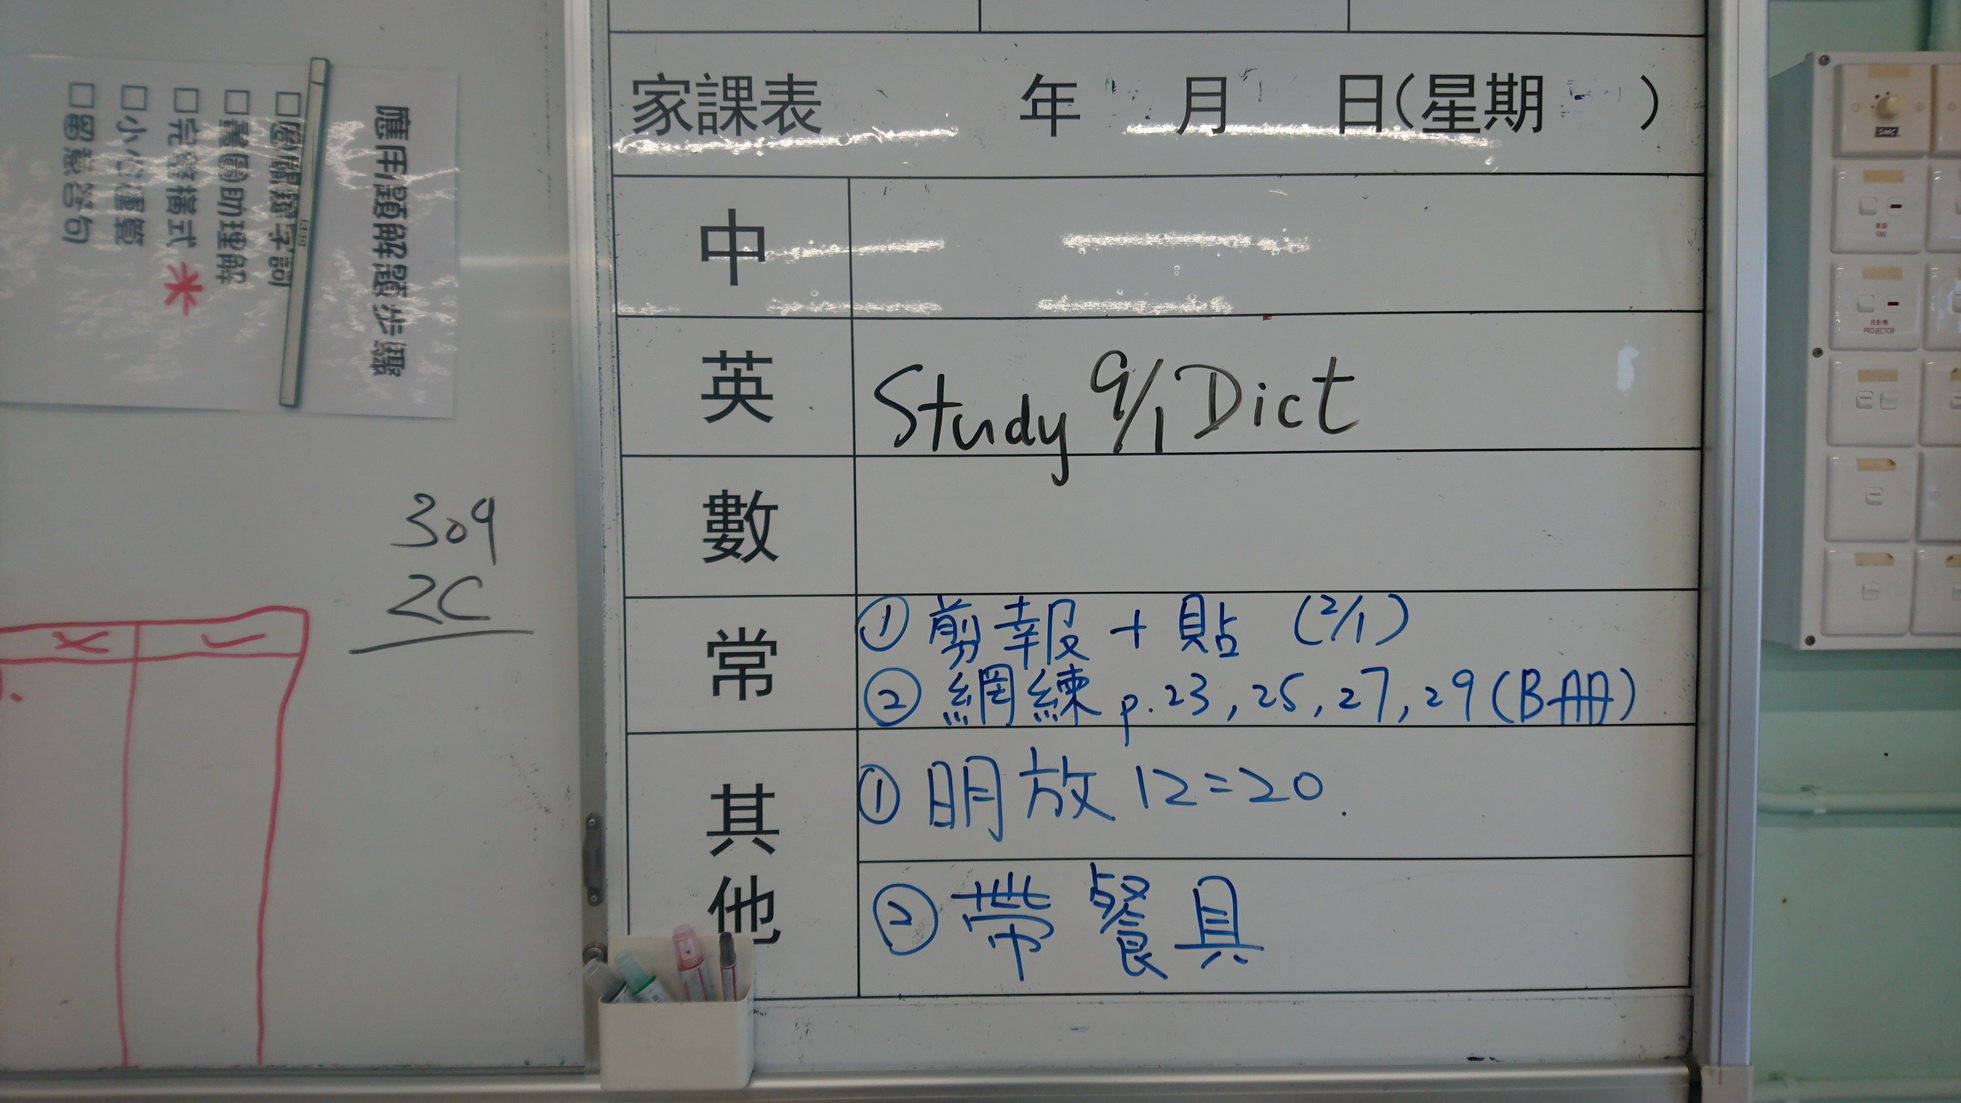 應用題解題步驟
□圈關鍵字詞
□畫圖助理解
□完整橫式 *
□小心運算
□留意答句
309
2C
家課表 年 月 日(星期 )
中
英 Study 9/1 Dict
數
常 ① 剪報 + 貼 (2/1)
② 網練 p.23, 25, 27, 29 (B冊)
其他 ① 明放 12=20.
② 帶餐具
SMC
風扇
FAN
投影機
PROJECTOR